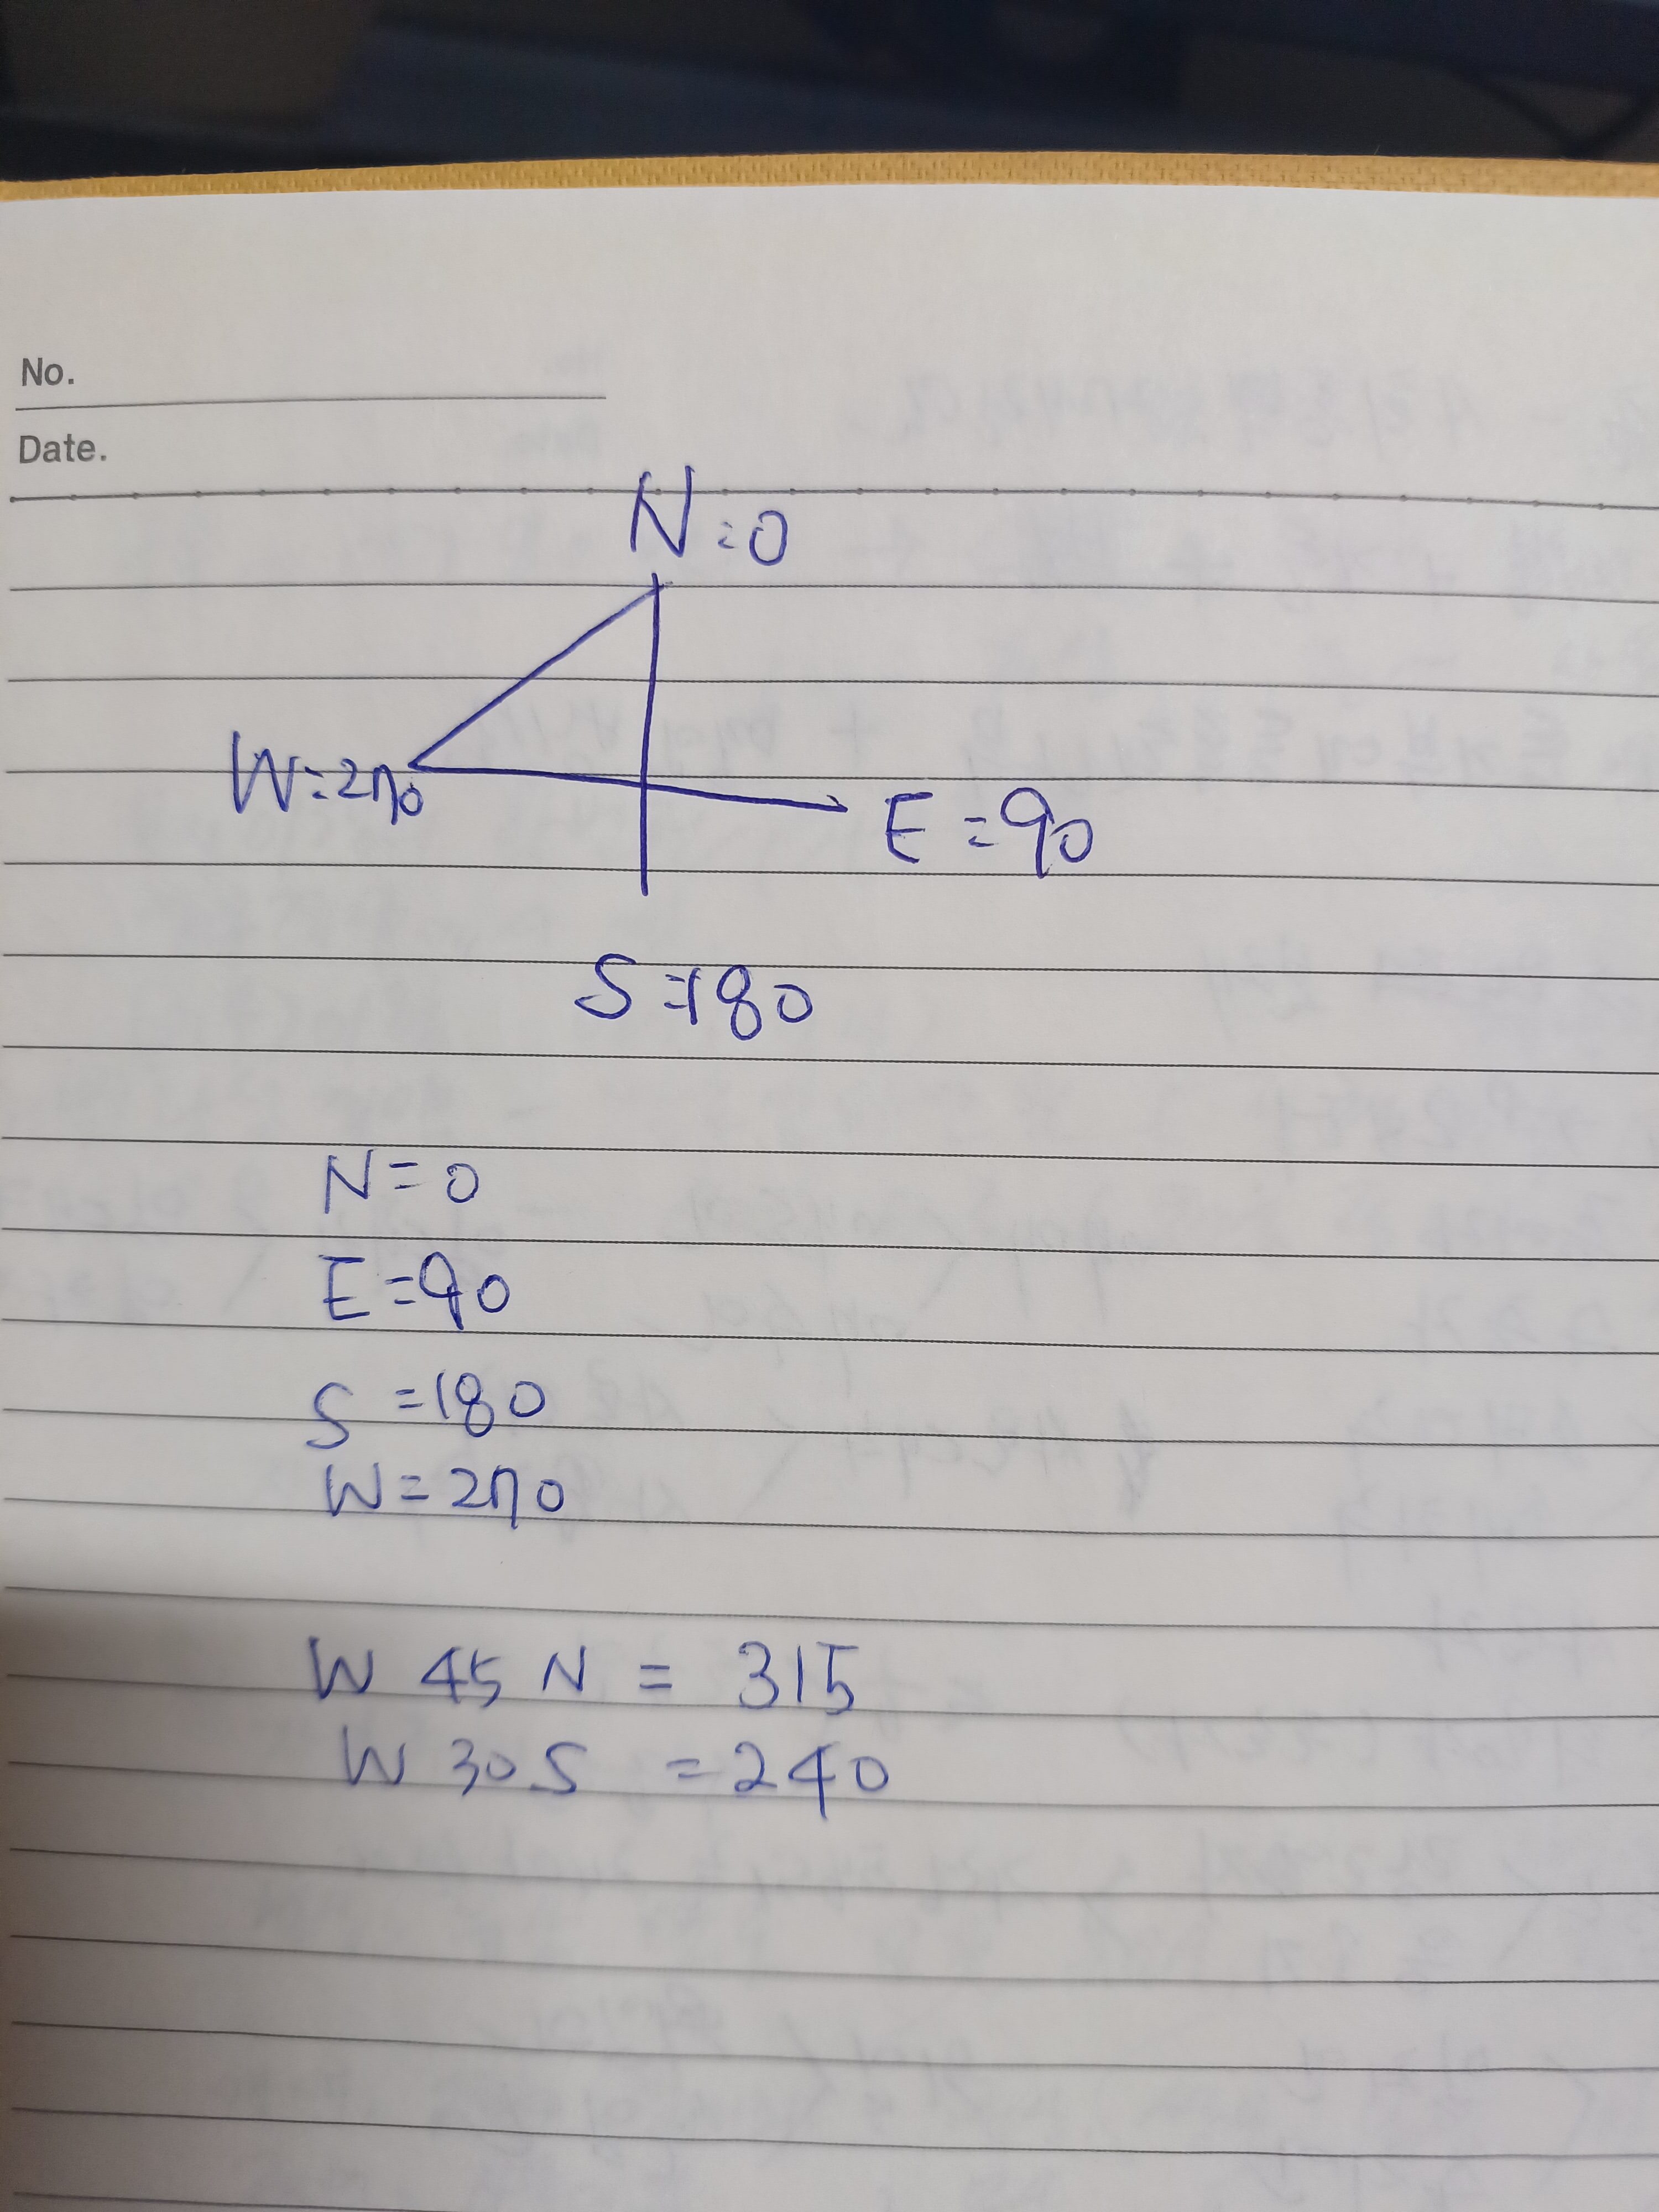 No.
Date.
N=0
W=270
E=90
S=180
N=0
E=90
S=180
W=270
W 45 N = 315
W 30 S = 240